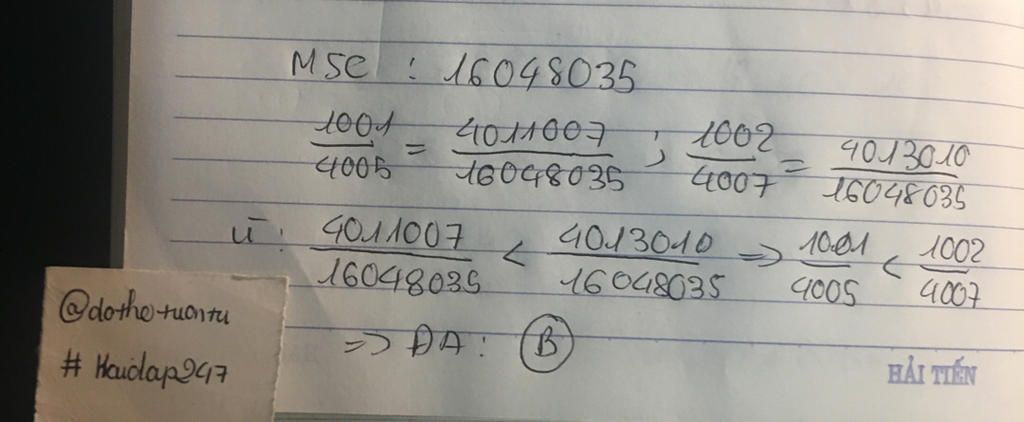 MSC : 16048035
1001/4005 = 4011007/16048035 ; 1002/4007 = 4013010/16048035
Vì : 4011007/16048035 < 4013010/16048035 => 1001/4005 < 1002/4007
=> ĐA : B
@dothotuantu
# Hoidap247
HẢI TIẾN